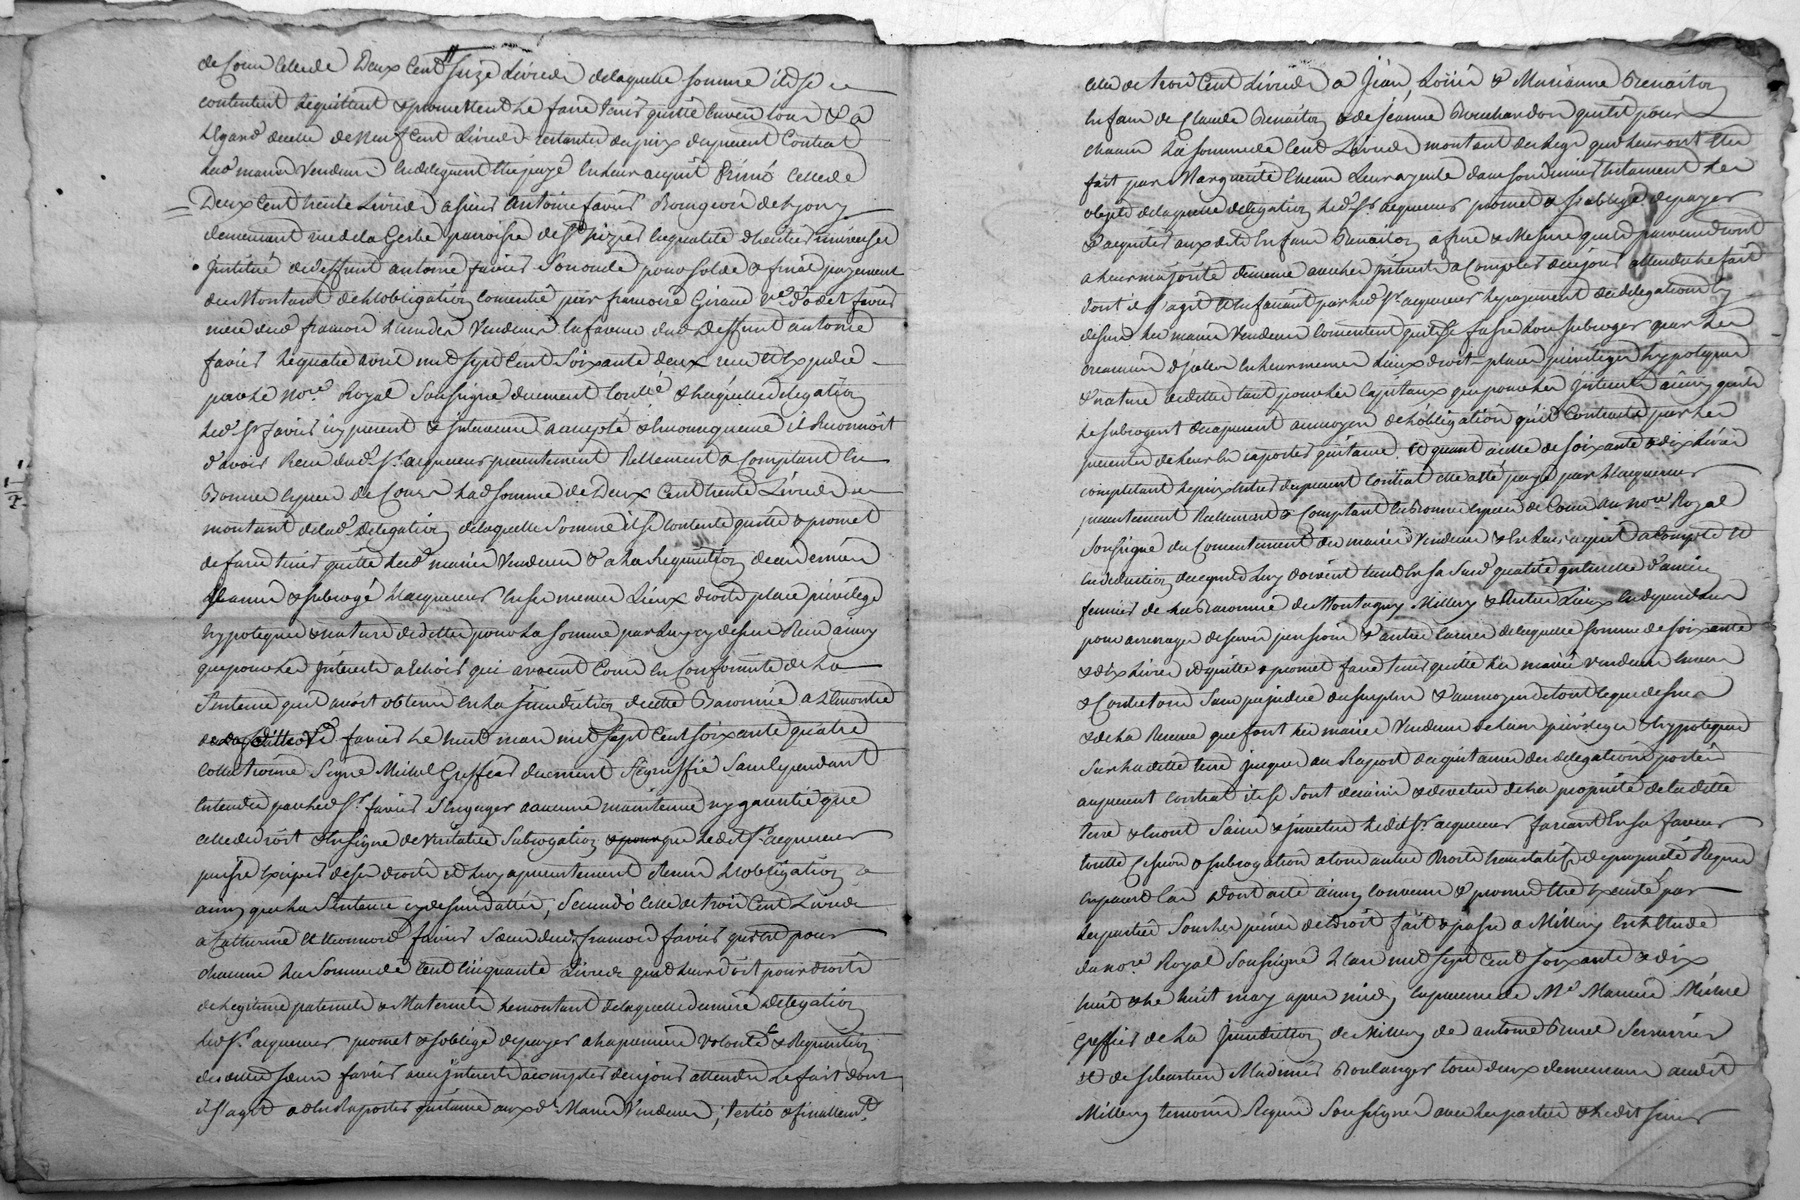 de Cour celle de Deux Cent seize Livres de laquelle somme ils se
contentent le quittent & promettent le faire tenir quitte envers tous & a
L'egard de celle de Neuf Cent Livres restantes du prix du present Contrat
les d. mariés Vendeurs deleguent payé en leur acquit Primo celle de
Deux Cent trente Livres a sieur Antoine favier Bourgeois de Lyon y
demeurant rue de la Gerbe parroisse de St. Nizier en qualité d'heritier universel
Institué de deffunt antoine favier Son oncle pour solde & final payement
du Montant de L'obligation consentie par françoise Giraud Ve. d'odet favier
mere du d. françois l'un des Vendeurs en faveur du d. Deffunt antoine
favier le quatre avril mil sept Cent Soixante deux reçue Et Expediée
par le Nore. Royal Soussigné duement Controllé & laquelle delegation
led. Sr. favier icy present & intervenant a accepté & au moyen il Reconnoit
d'avoir Reçu dud. Sr. acquereur presentement Rellement & Comptant en
Bonnes Especes de Cour la d. somme de Deux Cent trente Livres
montant de la d. Delegation de laquelle Somme il se contente quitte & promet
de faire tenir quitte les d. mariés Vendeurs & a la Requisition de ces derniers
a mis & subrogé L'acquereur en ses memes Lieux droits place privilege
hypoteques & nature de dettes pour la somme par luy cy dessus Reçue ainsy
que pour les Interets a Echoir qui avoient Couru en Conformité de la
Sentence qu'il avoit obtenu en la jurisdiction de cette Baronnie a L'encontre
de la ditte Ve. favier le huit mars mil sept Cent soixante quatre
Collationné Signé Michel Greffier duement Signiffié Sans Cependant
Entendre par led. Sr. favier S'engager a aucune maintenue ny garentie que
celle de droit & En Signe de Veritable Subrogation & pour que led. Sr. acquereur
puisse Exiger des d. droits il luy a presentement Remis L'obligation
ainsy que la Sentence cy dessus datées, Secundo celle de trois Cent Livres
a Catherine Et Leonnord favier Sœurs dud. françois favier qui est pour
chacune la Somme de Cent Cinquante Livres que leur doit pour droits
de Legitime paternels & Maternels le montant de laquelle derniere delegation
led. Sr. acquereur promet & s'oblige de payer a la premiere Volonté & Requisition
desdittes sœurs favier avec Interets a compter de ce jour attendu Le fait dont
il S'agit & d'en Raporter quittance auxd. Mariés Vendeurs; Tertio & finallemt.
celle de trois Cent Livres a Jean, Loüis & Marianne Benaiton
Enfans de Claude Benaiton & de Jeanne Bouchardon qui est pour
chacun la somme de Cent Livres montant du Legs qui leur ont Eté
fait par Marguerite Leur ayeule dans son dernier testament les
objets de laquelle delegation led. Sr. acquereur promet & s'oblige de payer
& acquitter auxdits Enfans Benaiton a fure & Mesure qu'ils parviendront
a leur majorité de meme avec les Interets a Compter de ce jour attendu le fait
dont il S'agit & En faisant par led. Sr. acquereur le payement des delegations cy
dessus les mariés Vendeurs Consentent qu'il se fasse Bon Subroger par les
Creanciers d'jceles en leurs memes Lieux droits place privileges hypoteques
& nature de dettes tant pour les Capitaux que pour les Interets ainsy qu'ils
le subrogent des apresent au moyen de L'obligation qu'il Contracte par les
presentes de leur En raporter quittance. Et quant a celle de Soixante & dix Livres
completant le prix Entier du present Contrat elle a Eté payé par L'acquereur
presentement Rellement & Comptant En Bonnes Especes de Cour au Nore. Royal
Soussigné du Consentement des mariés Vendeurs & En leur acquit a Compte Et
En deduction de ce qu'ils luy doivent tant En sa Susd. qualité qu'en celle d'ancien
fermier de la Baronnie de Montagny Millery & autres Lieux En dependans
pour arrerages de servis pension & autres Causes de laquelle Somme de Soixante
& dix Livres il quitte & promet faire tenir quitte les mariés Vendeurs Envers
& Contre tous Sans prejudice du surplus & au moyen de tout ce que dessus
& de la Reserve que font les mariés Vendeurs de leurs privileges & hypoteques
Sur la ditte terre jusques au Raport des quittances des delegations portées
au present Contrat ils se Sont demis & devetus de la proprieté de la ditte
terre & En ont Saisi & jnvetus led. Sr. acquereur faisant En sa faveur
toutte Cession & subrogation a tous autres Droits translatifs de proprieté Requis
En pareil Cas Dont acte ainsy Convenu & promis Etre Executé par
les parties Sous les peines de droit fait & passé a Millery En L'Etude
du nore. Royal Soussigné L'an mil sept Cent soixante & dix
huit & le huit may apres midy En presence de Me. Maurice Michel
Greffier de la Jurisdiction de Millery de antoine Brunel Serrurier
Et de Sebastien Madinier Boulanger tous deux demeurans audit
Millery temoins Requis Soussignés avec les parties & ledit sieur